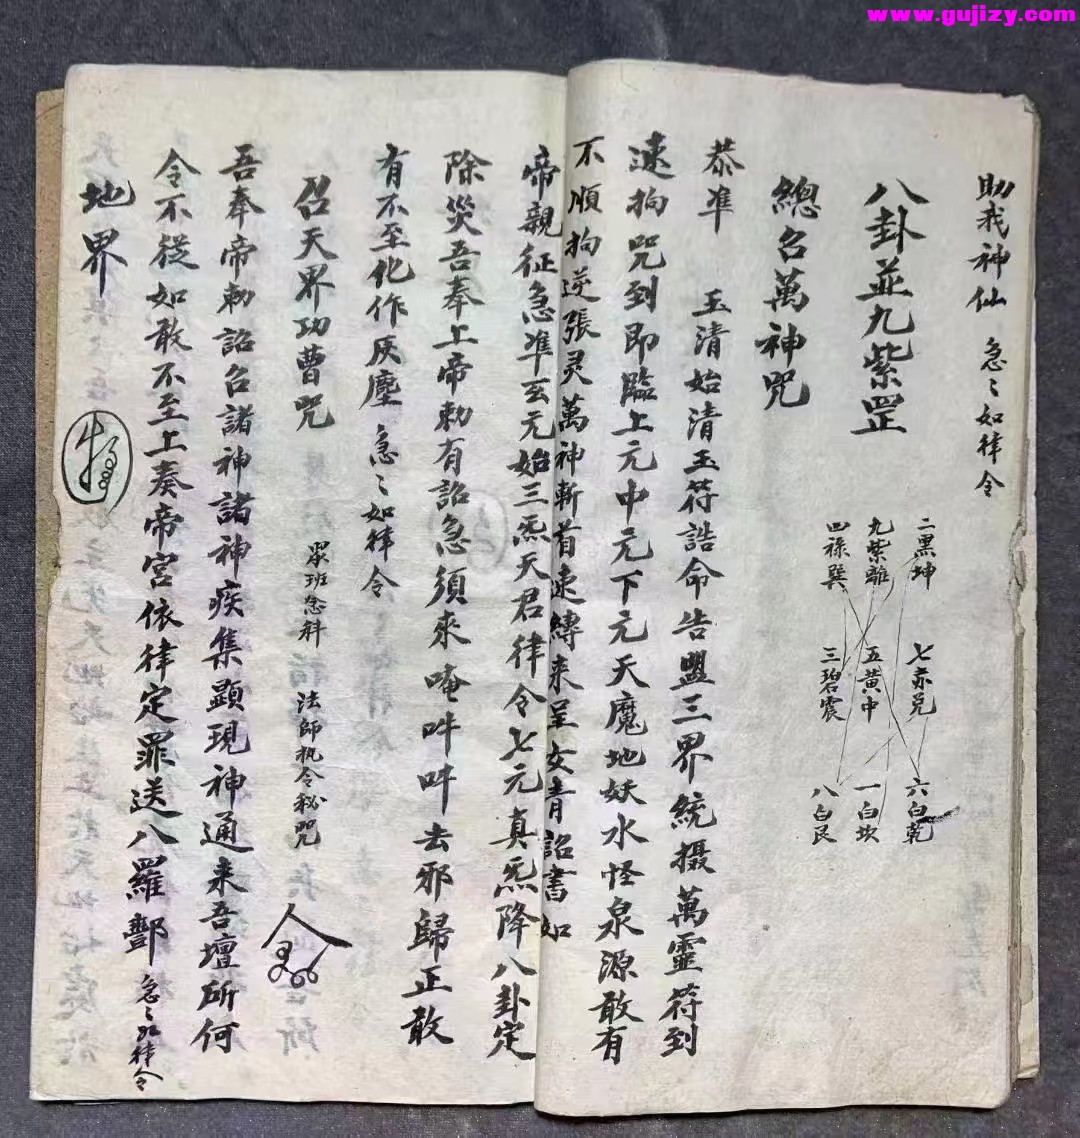 www.gujizy.com
助我神仙 急〻如律令
八卦並九紫罡
二黑坤 七赤兑 六白乾
九紫離 五黄中 一白坎
四禄巽 三碧震 八白艮
總召萬神咒
恭準 玉清始清玉符誥命告盟三界統摄萬靈符到
速拘咒到即臨上元中元下元天魔地妖水怪泉源敢有
不順拘逆張灵萬神斬首速縳来呈女青詔書如
帝親征急準玄元始三炁天君律令七元真炁降八卦定
除災吾奉上帝勅有詔急須來唵吽吽去邪歸正敢
有不至化作灰塵 急〻如律令
召天界功曹咒 眾班念科 法師执令秘咒
吾奉帝勅詔召諸神諸神疾集顯現神通来吾壇所何
令不從如敢不至上奏帝宮依律定罪送八羅酆 急〻如律令
地界